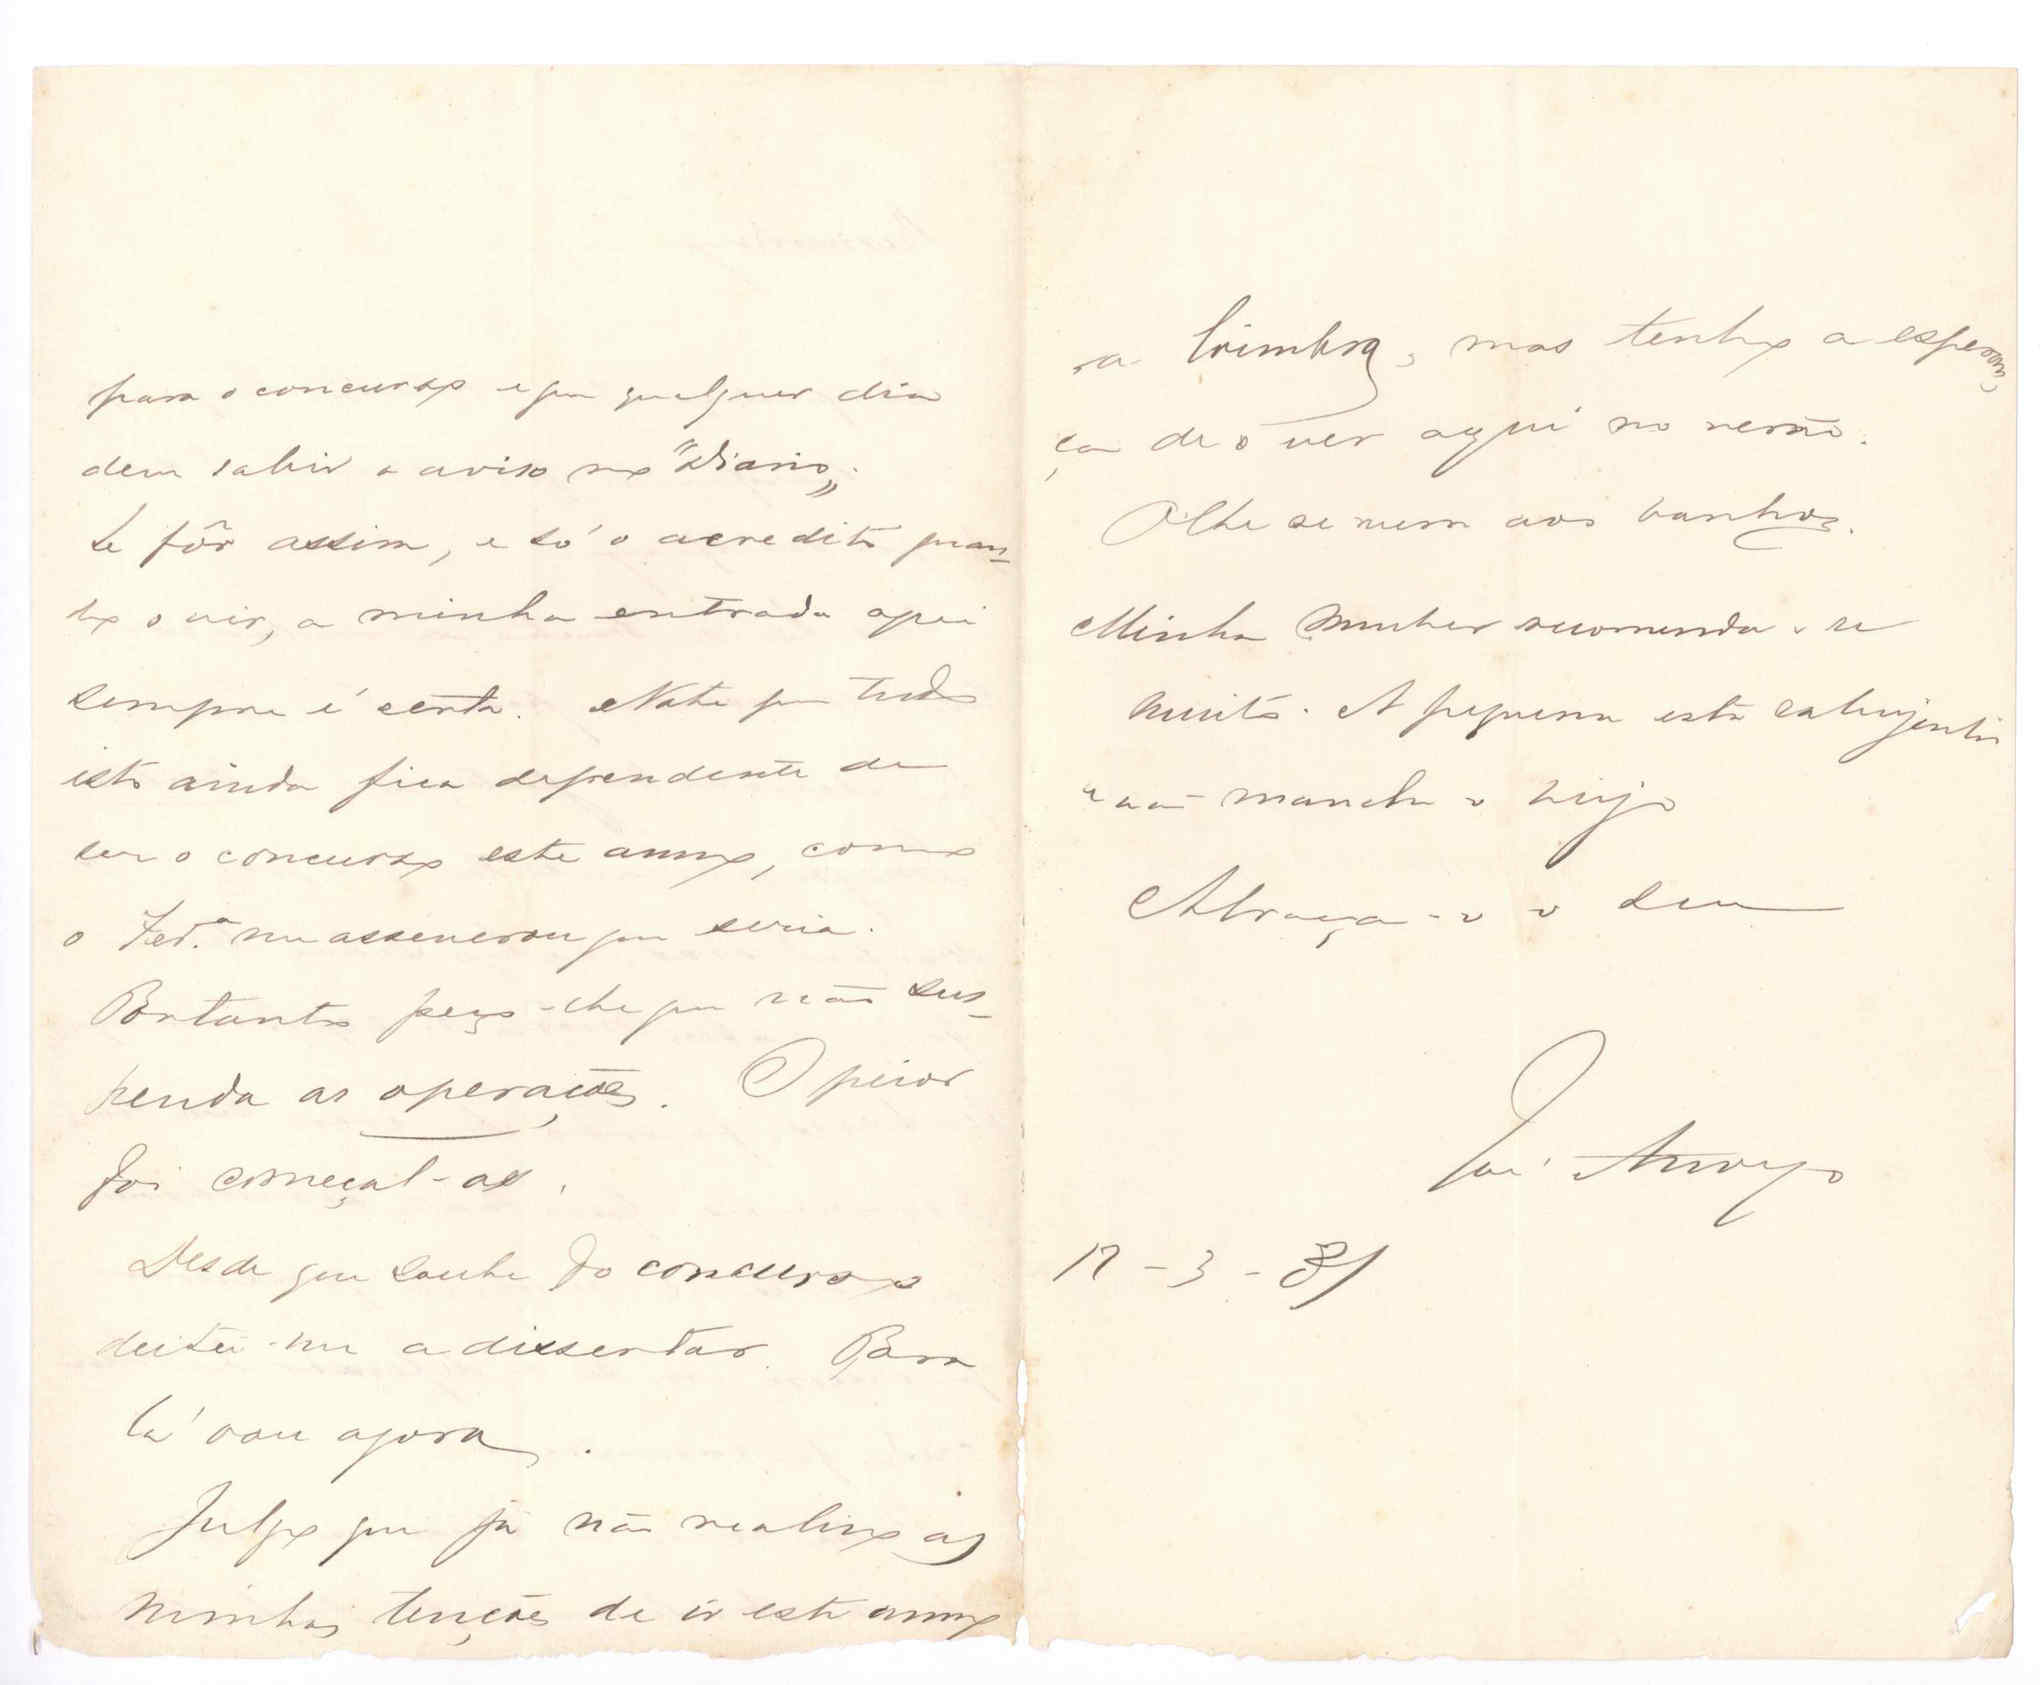 para o concurso e que qualquer dia
deve sahir o aviso no "Diario„.
Se fôr assim, e só o acredito quan-
do o vir, a minha entrada aqui
sempre é certa. Note que tudo
isto ainda fica dependente de
ser o concurso este anno, como
o Fed.ª me asseverou que seria.
Portanto peço-lhe que não sus-
penda as operações. O peior
foi começal-as.
Desde que soube do concurso
deitei-me a dissertar. Para
lá vou agora.
Julgo que já não realiso as
minhas tenções de ir este anno
a Coimbra, mas tenho a esperan-
ça de o ver aqui no verão.
Olhe se vem aos banhos.
Minha mulher recomenda-se
muito. A pequena está
manda o beijo
Abraça-o o seu
José Arroyo
-3-81